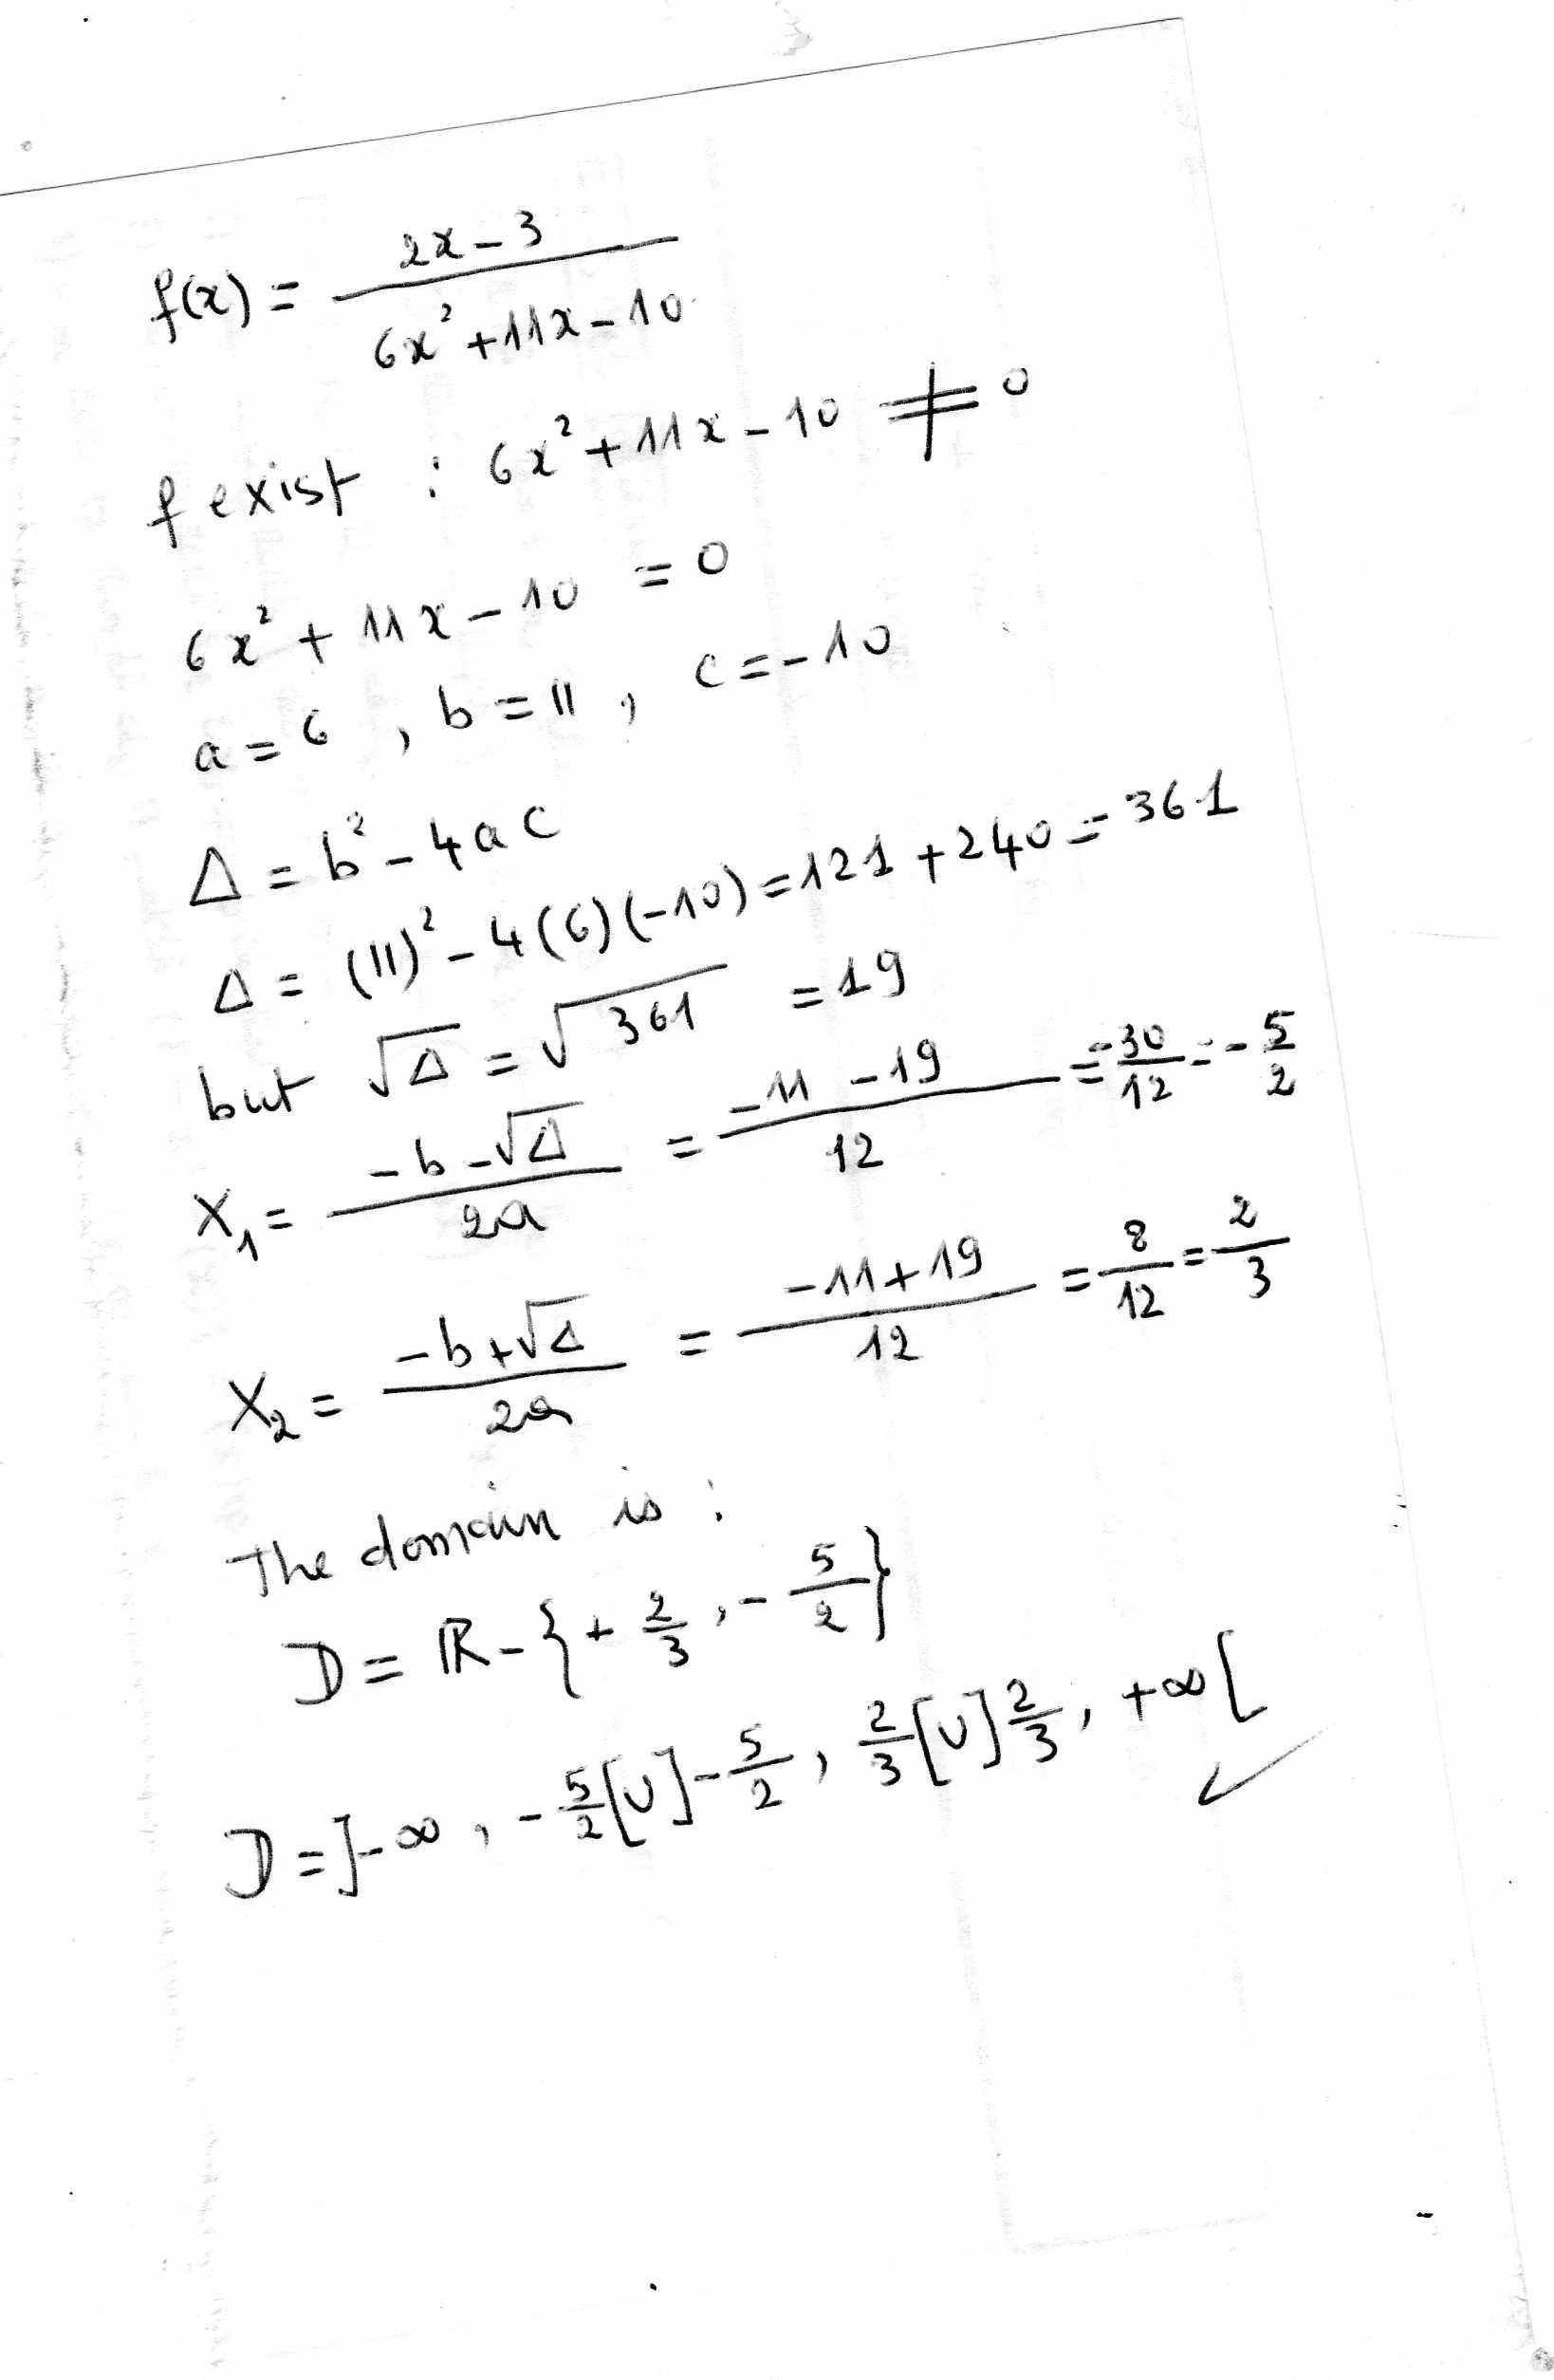 f(x) = (2x - 3) / (6x² + 11x - 10)
f exist : 6x² + 11x - 10 ≠ 0
6x² + 11x - 10 = 0
a = 6 , b = 11 , c = -10
Δ = b² - 4ac
Δ = (11)² - 4(6)(-10) = 121 + 240 = 361
but √Δ = √361 = 19
X₁ = (-b - √Δ) / 2a = (-11 - 19) / 12 = -30/12 = -5/2
X₂ = (-b + √Δ) / 2a = (-11 + 19) / 12 = 8/12 = 2/3
The domain is :
D = ℝ - {+ 2/3 , - 5/2}
D = ]-∞ , -5/2[ U ]-5/2 , 2/3[ U ]2/3 , +∞[ ✓